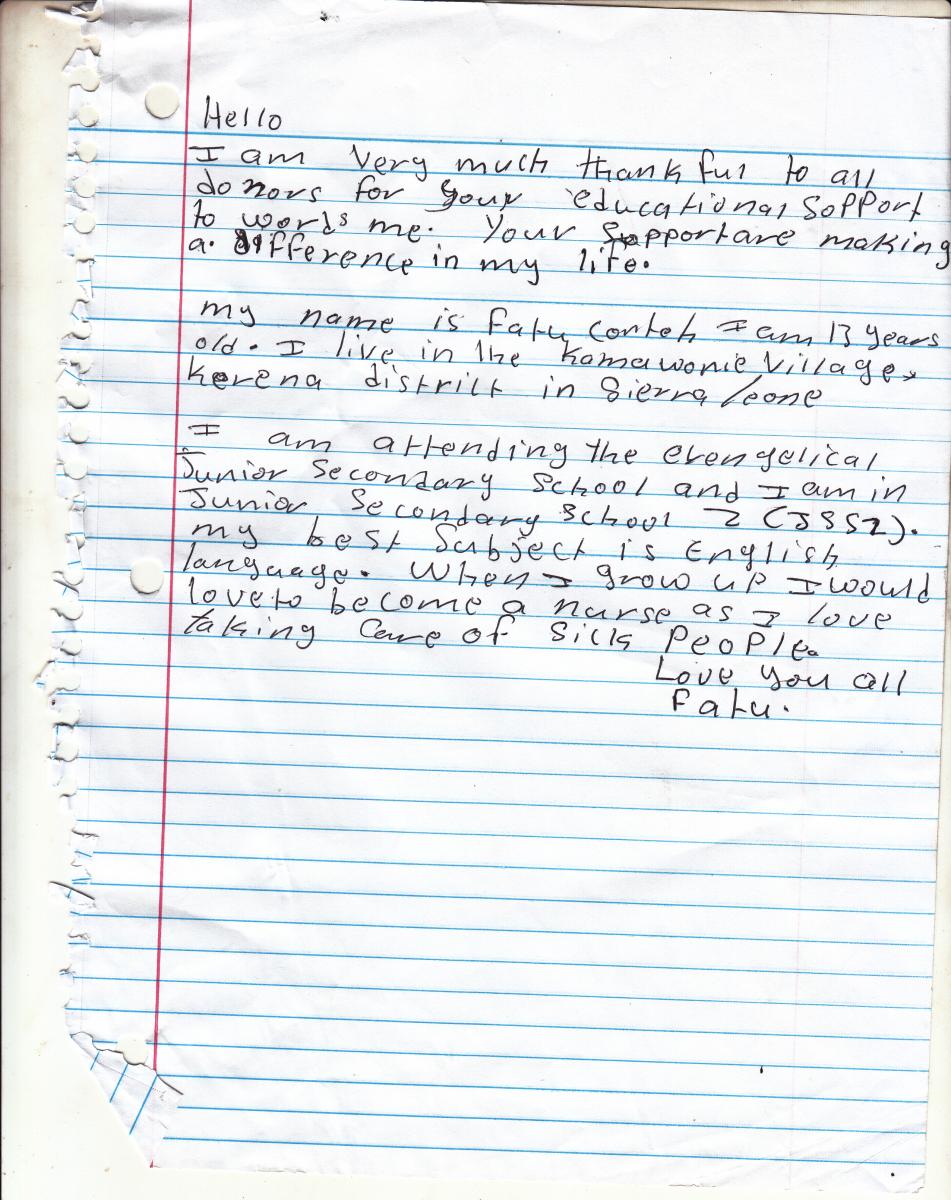 Hello
I am very much thankful to all
donors for your educational sopport
to words me. Your support are making
a difference in my life.
my name is Fatu conteh I am 13 years
old. I live in the Kamawonie Village,
kerena district in Sierra leone
I am attending the evengelical
Junior Secondary School and I am in
Junior Secondary School 2 (JSS2).
my best Subject is English
language. When I grow up I would
love to become a nurse as I love
taking care of sick people.
Love you all
Fatu.